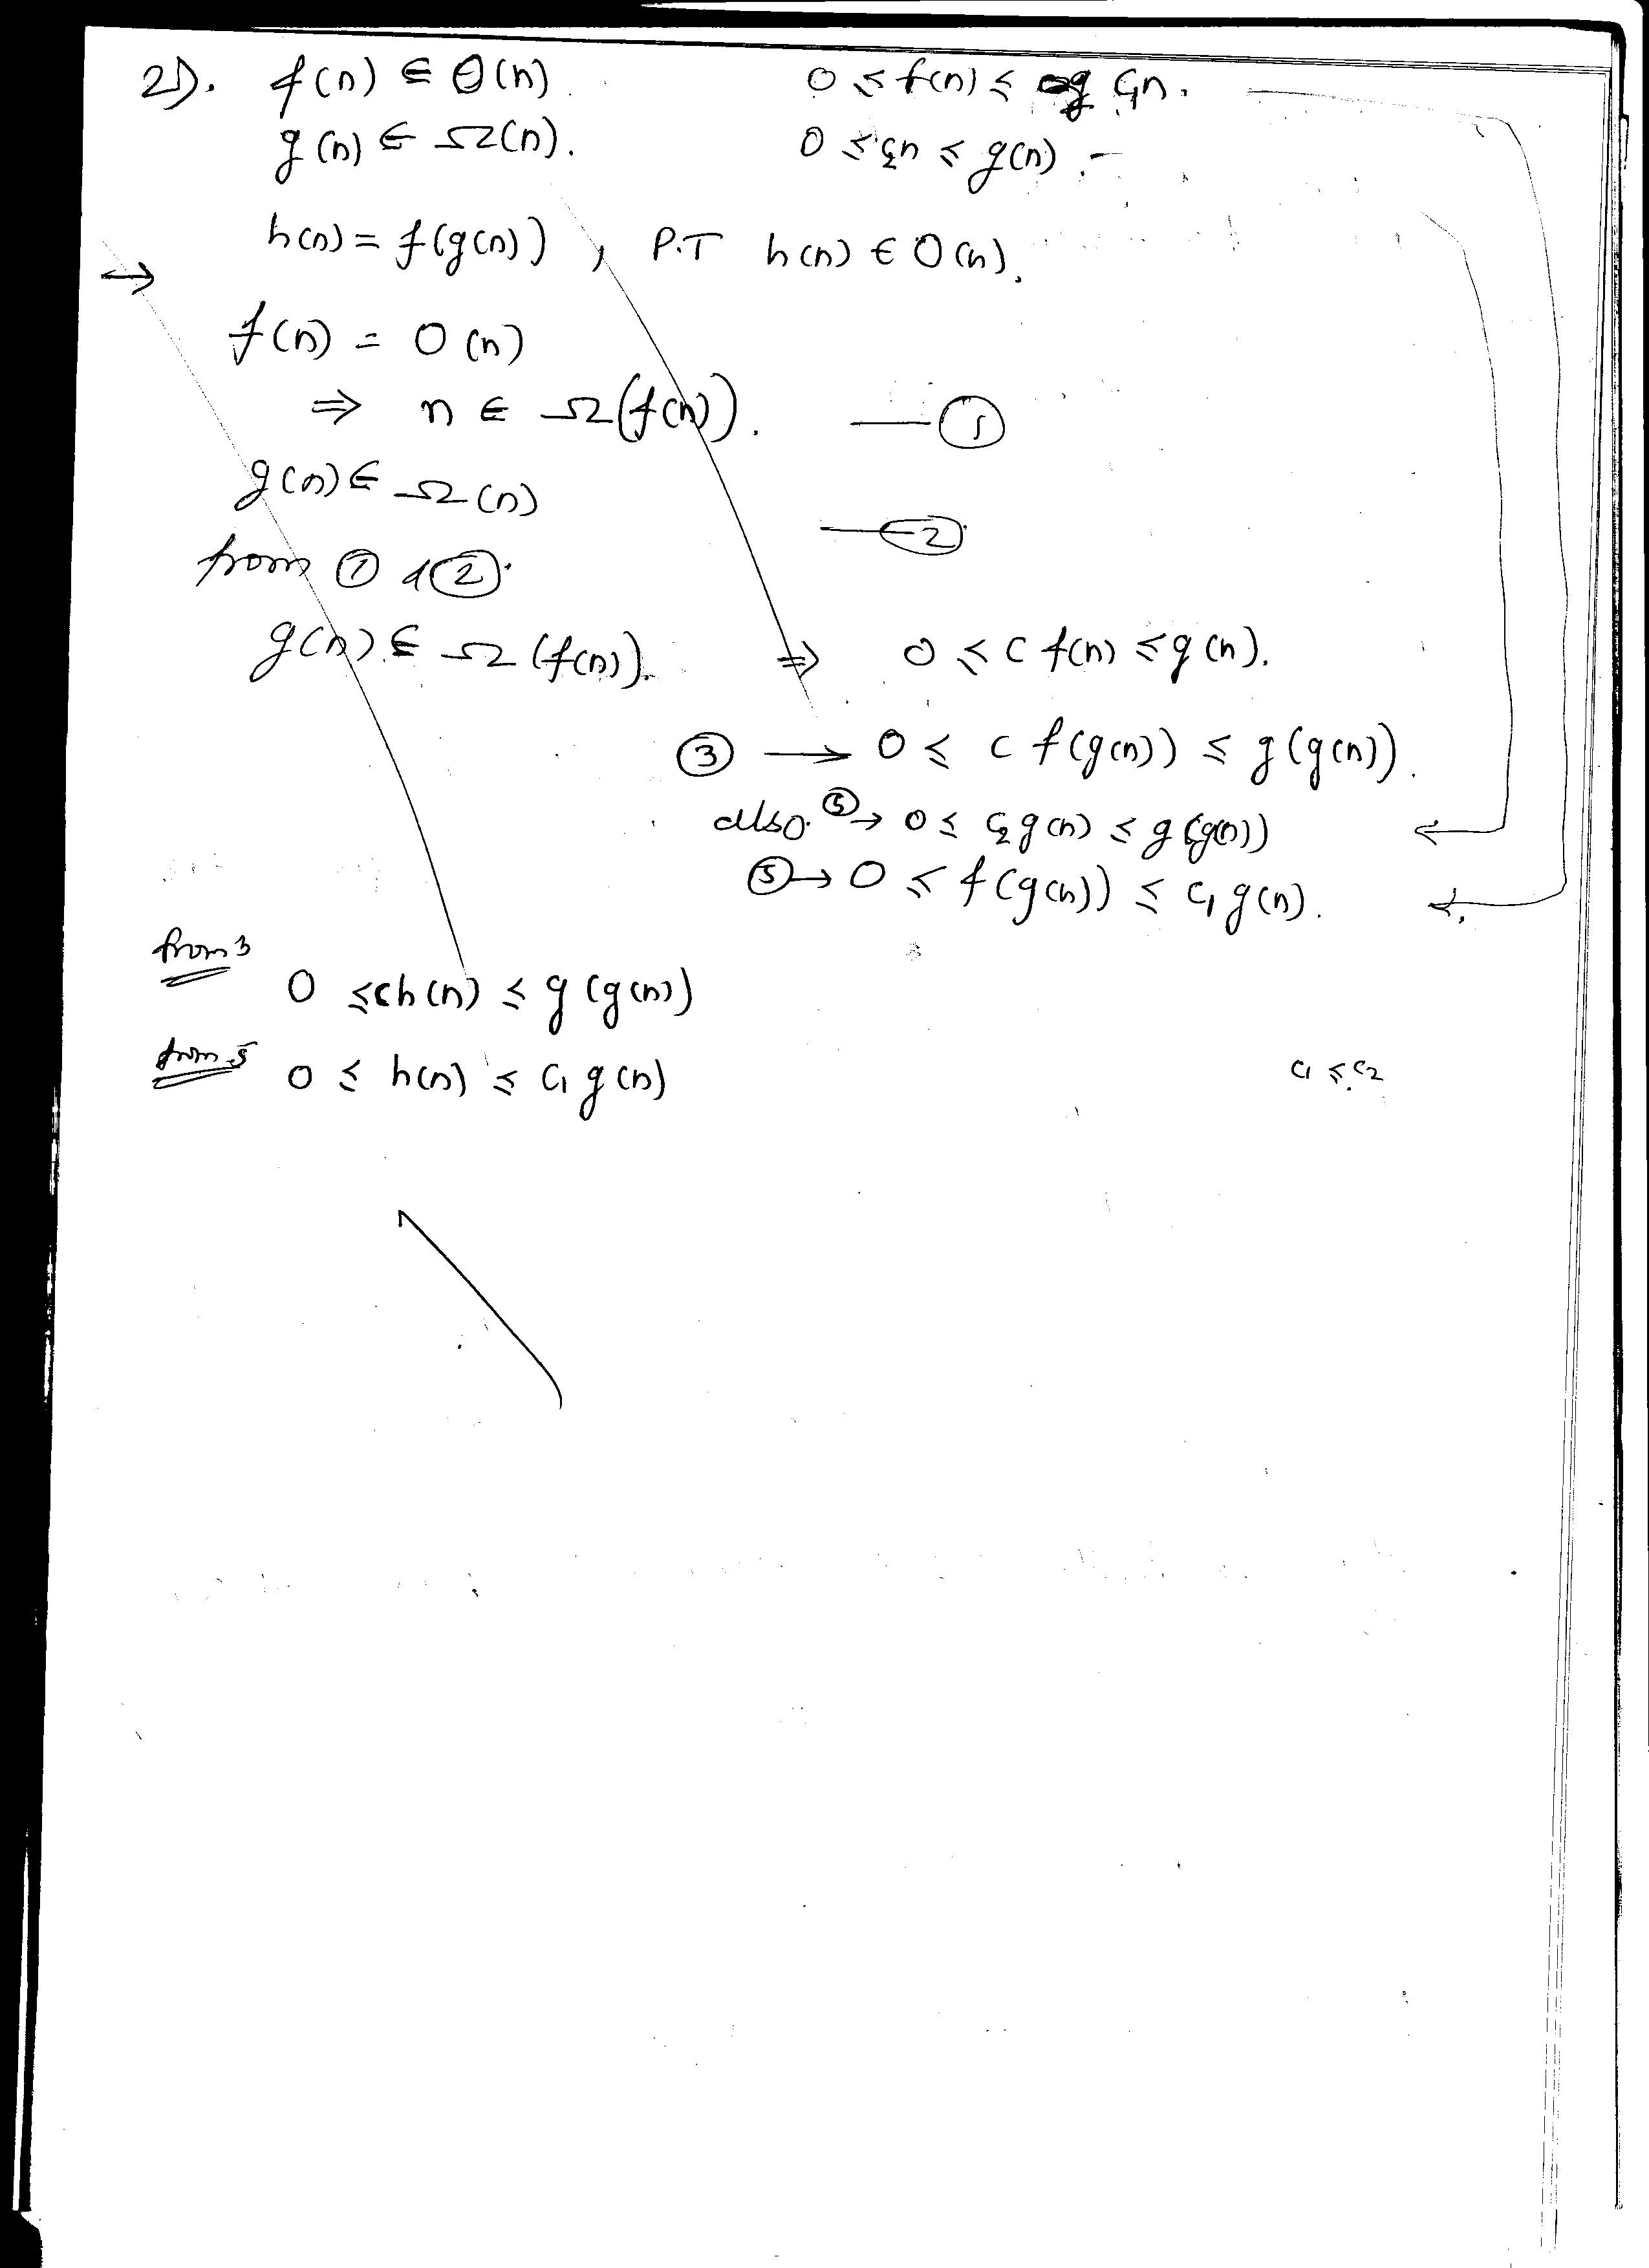 2). f(n) ∈ Θ(n). 0 ≤ f(n) ≤ c₁n.
g(n) ∈ Ω(n). 0 ≤ c₂n ≤ g(n).
h(n) = f(g(n)) , P.T h(n) ∈ O(n).
→
f(n) = O(n)
⇒ n ∈ Ω(f(n)). — ①
g(n) ∈ Ω(n) — ②
from ① & ②
g(n) ∈ Ω(f(n)). ⇒ 0 ≤ c f(n) ≤ g(n).
③ → 0 ≤ c f(g(n)) ≤ g(g(n)).
also ⑤ → 0 ≤ c₂ g(n) ≤ g(g(n))
⑤ → 0 ≤ f(g(n)) ≤ c₁ g(n).
from 3
0 ≤ c h(n) ≤ g(g(n))
from 5 0 ≤ h(n) ≤ c₁ g(n) c₁ ≤ c₂